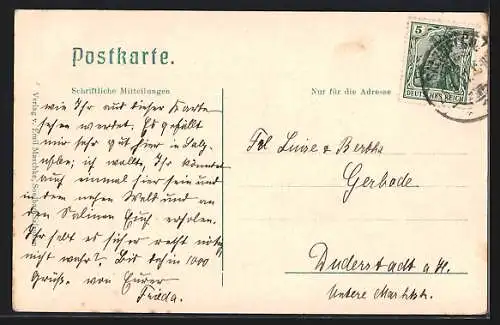 Postkarte.
5
DEUTSCHES REICH
Schriftliche Mitteilungen
Nur für die Adresse
wie Ihr aus dieser Karte
sehen werdet. Es gefällt
mir sehr gut hier in Salz-
ich wollte, Ihr könntet
auf einmal hier sein und
in dem nahen Wald und an
den Salinen Euch erholen.
Ihr habt es sicher recht nötig
nicht wahr? Bis dahin 1000
Grüße. von Eurer
Frieda.
Frl Luise & Bertha
Gerbode
Duderstadt a. H.
Untere Marktstr.
Verlag v. Emil